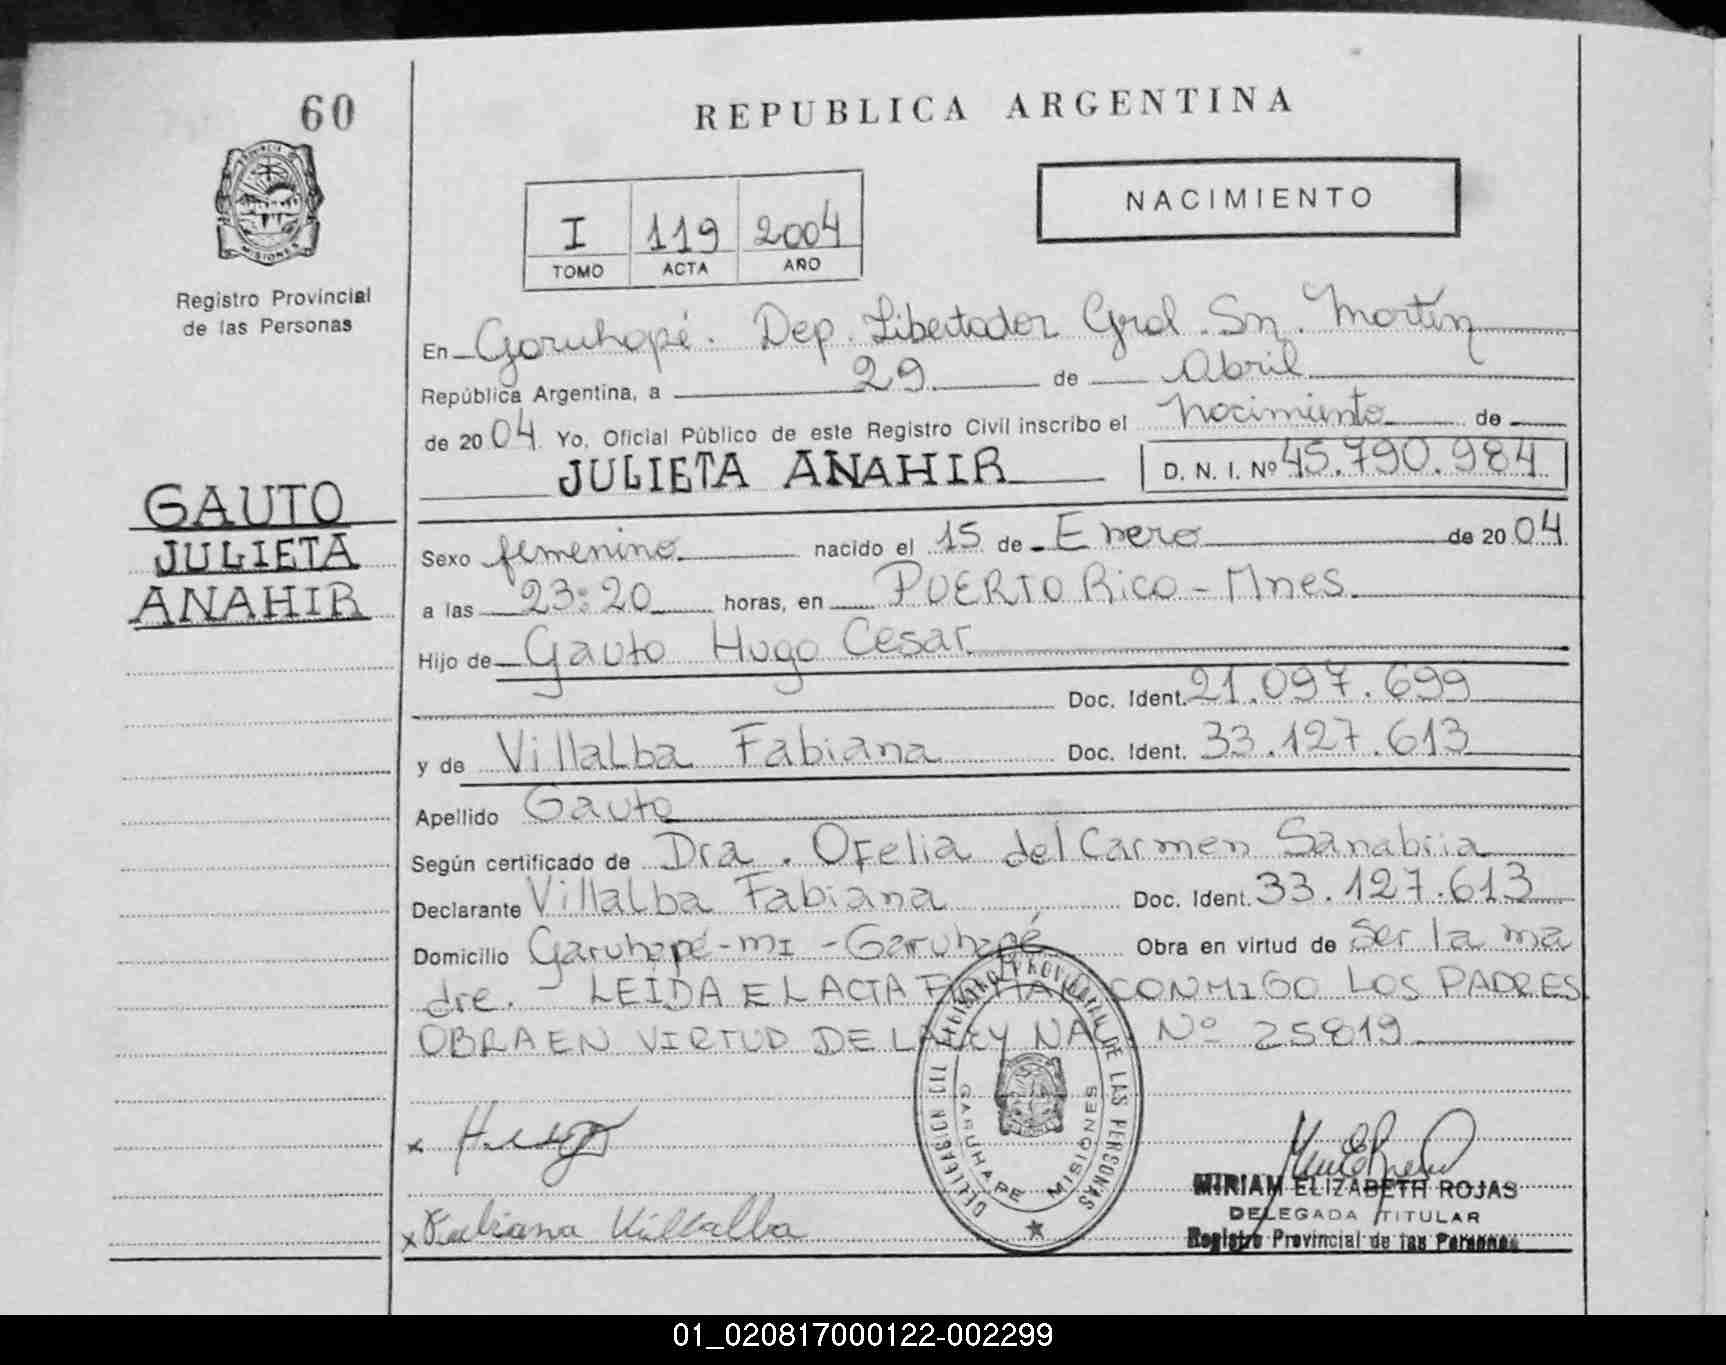 60
REPUBLICA ARGENTINA
PROVINCIA DE
MISIONES
Registro Provincial
de las Personas
NACIMIENTO
I 119 2004
TOMO ACTA AÑO
En Garuhapé. Dep. Libertador Gral. Sn. Martín
República Argentina, a 29 de Abril
de 2004 Yo, Oficial Público de este Registro Civil inscribo el Nacimiento de
JULIETA ANAHIR D. N. I. Nº 45.790.984
GAUTO
JULIETA
ANAHIR
Sexo femenino nacido el 15 de Enero de 2004
a las 23:20 horas, en PUERTO Rico - Mnes
Hijo de Gauto Hugo Cesar
Doc. Ident. 21.097.699
y de Villalba Fabiana Doc. Ident. 33.127.613
Apellido Gauto
Según certificado de Dra. Ofelia del Carmen Sanabria
Declarante Villalba Fabiana Doc. Ident. 33.127.613
Domicilio Garuhapé-mi - Garuhapé Obra en virtud de Ser la ma
dre. LEIDA EL ACTA FIRMAN CONMIGO LOS PADRES
OBRA EN VIRTUD DE LA LEY NAC Nº 25819
DELEGACION DEL REGISTRO PROVINCIAL DE LAS PERSONAS
GARUHAPE MISIONES
x Hugo
x Fabiana Villalba
MIRIAM ELIZABETH ROJAS
DELEGADA TITULAR
Registro Provincial de las Personas
01_020817000122-002299